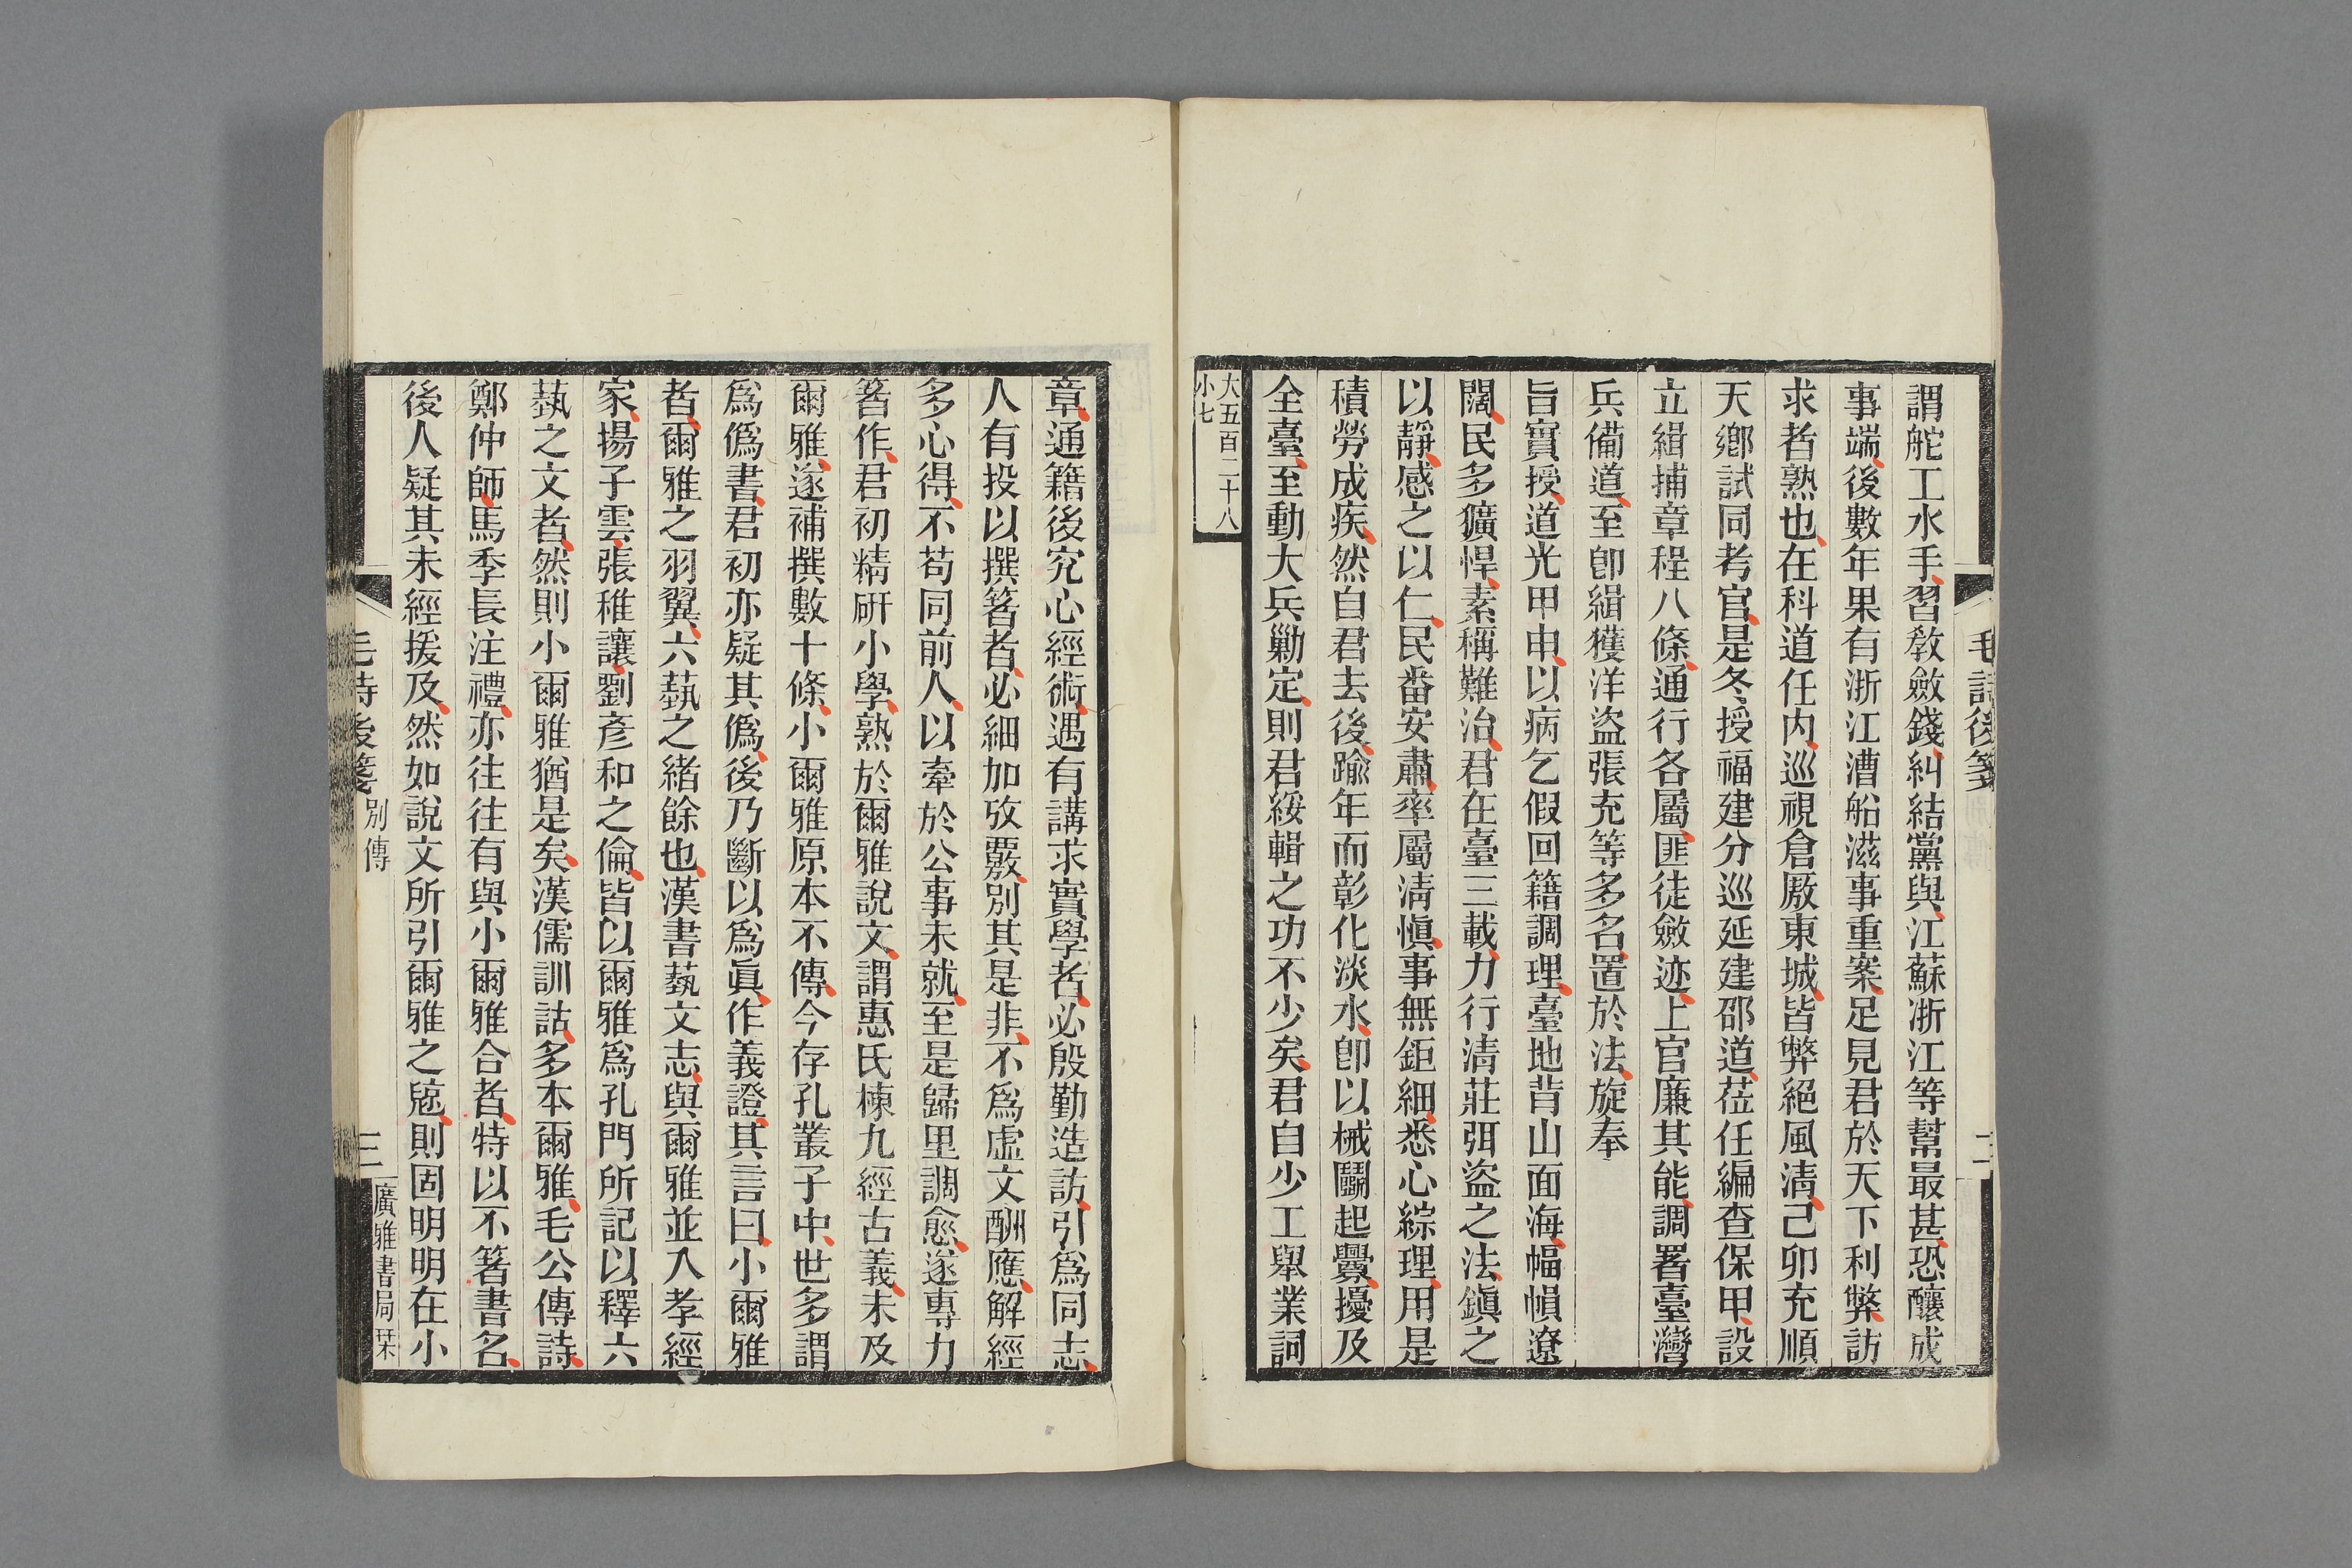 毛詩後箋
二
謂舵工水手習教斂錢糾結黨與江蘇浙江等幫最甚恐釀成
事端後數年果有浙江漕船滋事重案足見君於天下利弊訪
求者熟也在科道任內巡視倉厫東城皆弊絕風清己卯充順
天鄉試同考官是冬授福建分巡延建邵道莅任編查保甲設
立緝捕章程八條通行各屬匪徒斂迹上官廉其能調署臺灣
兵備道至卽緝獲洋盜張充等多名置於法旋奉
旨實授道光甲申以病乞假回籍調理臺地背山面海幅幀遼
闊民多獷悍素稱難治君在臺三載力行清莊弭盜之法鎭之
以靜感之以仁民番安肅率屬清愼事無鉅細悉心綜理用是
積勞成疾然自君去後踰年而彰化淡水卽以械鬭起釁擾及
全臺至動大兵勦定則君綏輯之功不少矣君自少工舉業詞
大五百二十八
小七
章通籍後究心經術遇有講求實學者必殷勤造訪引爲同志
人有投以撰箸者必細加攷覈別其是非不爲虛文酬應解經
多心得不苟同前人以牽於公事未就至是歸里調愈遂專力
箸作君初精硏小學熟於爾雅說文謂惠氏棟九經古義未及
爾雅遂補撰數十條小爾雅原本不傳今存孔叢子中世多謂
爲僞書君初亦疑其僞後乃斷以爲眞作義證其言曰小爾雅
者爾雅之羽翼六蓺之緒餘也漢書蓺文志與爾雅並入孝經
家揚子雲張稚讓劉彥和之倫皆以爾雅爲孔門所記以釋六
蓺之文者然則小爾雅猶是矣漢儒訓詁多本爾雅毛公傳詩
鄭仲師馬季長注禮亦往往有與小爾雅合者特以不箸書名
後人疑其未經援及然如說文所引爾雅之䣼則固明明在小
毛詩後箋
別傳
三
廣雅書局栞